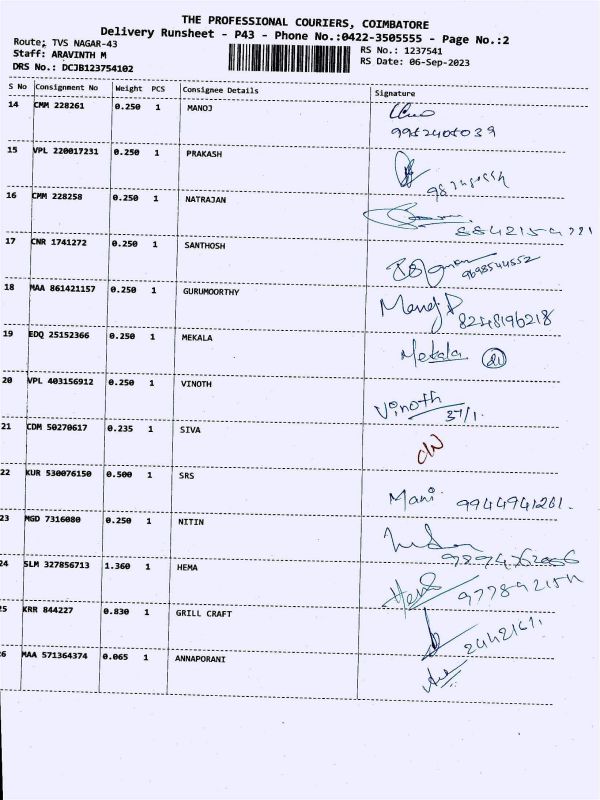 THE PROFESSIONAL COURIERS, COIMBATORE
Delivery Runsheet - P43 - Phone No.:0422-3505555 - Page No.:2
Route: TVS NAGAR-43 RS No.: 1237541
Staff: ARAVINTH M RS Date: 06-Sep-2023
DRS No.: DCJB123754102
S No Consignment No Weight PCS Consignee Details Signature
14 CMM 228261 0.250 1 MANOJ
15 VPL 220017231 0.250 1 PRAKASH
16 CMM 228258 0.250 1 NATRAJAN
17 CNR 1741272 0.250 1 SANTHOSH
9698544552
18 MAA 861421157 0.250 1 GURUMOORTHY Manoj P
8248196218
19 EDQ 25152366 0.250 1 MEKALA Mekala
20 VPL 403156912 0.250 1 VINOTH Vinoth
37/1.
21 CDM 50270617 0.235 1 SIVA
22 KUR 530076150 0.500 1 SRS Mani 9944941261.
23 MGD 7316080 0.250 1 NITIN
24 SLM 327856713 1.360 1 HEMA
25 KRR 844227 0.830 1 GRILL CRAFT
26 MAA 571364374 0.065 1 ANNAPORANI